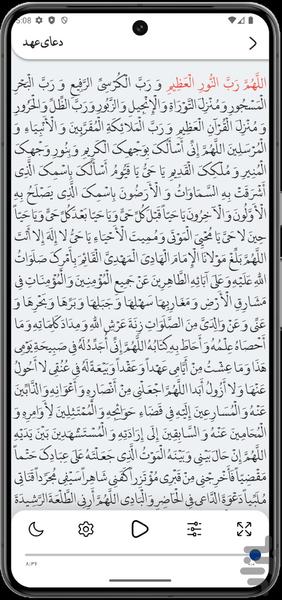 5:08
دعای عهد
اللَّهُمَّ رَبَّ النُّورِ الْعَظِيمِ وَ رَبَّ الْكُرْسِيِّ الرَّفِيعِ وَ رَبَّ الْبَحْرِ
الْمَسْجُورِ وَ مُنْزِلَ التَّوْرَاةِ وَ الْإِنْجِيلِ وَ الزَّبُورِ وَ رَبَّ الظِّلِّ وَ الْحَرُورِ
وَ مُنْزِلَ الْقُرْآنِ الْعَظِيمِ وَ رَبَّ الْمَلَائِكَةِ الْمُقَرَّبِينَ وَ الْأَنْبِيَاءِ وَ
الْمُرْسَلِينَ اللَّهُمَّ إِنِّي أَسْأَلُكَ بِوَجْهِكَ الْكَرِيمِ وَ بِنُورِ وَجْهِكَ
الْمُنِيرِ وَ مُلْكِكَ الْقَدِيمِ يَا حَيُّ يَا قَيُّومُ أَسْأَلُكَ بِاسْمِكَ الَّذِي
أَشْرَقَتْ بِهِ السَّمَاوَاتُ وَ الْأَرَضُونَ بِاسْمِكَ الَّذِي يَصْلَحُ بِهِ
الْأَوَّلُونَ وَ الْآخِرُونَ يَا حَيّاً قَبْلَ كُلِّ حَيٍّ وَ يَا حَيّاً بَعْدَ كُلِّ حَيٍّ وَ يَا حَيّاً
حِينَ لَا حَيَّ يَا مُحْيِيَ الْمَوْتَى وَ مُمِيتَ الْأَحْيَاءِ يَا حَيُّ لَا إِلَهَ إِلَّا أَنْتَ
اللَّهُمَّ بَلِّغْ مَوْلَانَا الْإِمَامَ الْهَادِيَ الْمَهْدِيَّ الْقَائِمَ بِأَمْرِكَ صَلَوَاتُ
اللَّهِ عَلَيْهِ وَ عَلَى آبَائِهِ الطَّاهِرِينَ عَنْ جَمِيعِ الْمُؤْمِنِينَ وَ الْمُؤْمِنَاتِ فِي
مَشَارِقِ الْأَرْضِ وَ مَغَارِبِهَا سَهْلِهَا وَ جَبَلِهَا وَ بَرِّهَا وَ بَحْرِهَا وَ
عَنِّي وَ عَنْ وَالِدَيَّ مِنَ الصَّلَوَاتِ زِنَةَ عَرْشِ اللَّهِ وَ مِدَادَ كَلِمَاتِهِ وَ مَا
أَحْصَاهُ عِلْمُهُ وَ أَحَاطَ بِهِ كِتَابُهُ اللَّهُمَّ إِنِّي أُجَدِّدُ لَهُ فِي صَبِيحَةِ يَوْمِي
هَذَا وَ مَا عِشْتُ مِنْ أَيَّامِي عَهْداً وَ عَقْداً وَ بَيْعَةً لَهُ فِي عُنُقِي لَا أَحُولُ
عَنْهَا وَ لَا أَزُولُ أَبَداً اللَّهُمَّ اجْعَلْنِي مِنْ أَنْصَارِهِ وَ أَعْوَانِهِ وَ الذَّابِّينَ
عَنْهُ وَ الْمُسَارِعِينَ إِلَيْهِ فِي قَضَاءِ حَوَائِجِهِ وَ الْمُمْتَثِلِينَ لِأَوَامِرِهِ وَ
الْمُحَامِينَ عَنْهُ وَ السَّابِقِينَ إِلَى إِرَادَتِهِ وَ الْمُسْتَشْهَدِينَ بَيْنَ يَدَيْهِ
اللَّهُمَّ إِنْ حَالَ بَيْنِي وَ بَيْنَهُ الْمَوْتُ الَّذِي جَعَلْتَهُ عَلَى عِبَادِكَ حَتْماً
مَقْضِيّاً فَأَخْرِجْنِي مِنْ قَبْرِي مُؤْتَزِراً كَفَنِي شَاهِراً سَيْفِي مُجَرِّداً قَنَاتِي
مُلَبِّياً دَعْوَةَ الدَّاعِي فِي الْحَاضِرِ وَ الْبَادِي اللَّهُمَّ أَرِنِي الطَّلْعَةَ الرَّشِيدَةَ